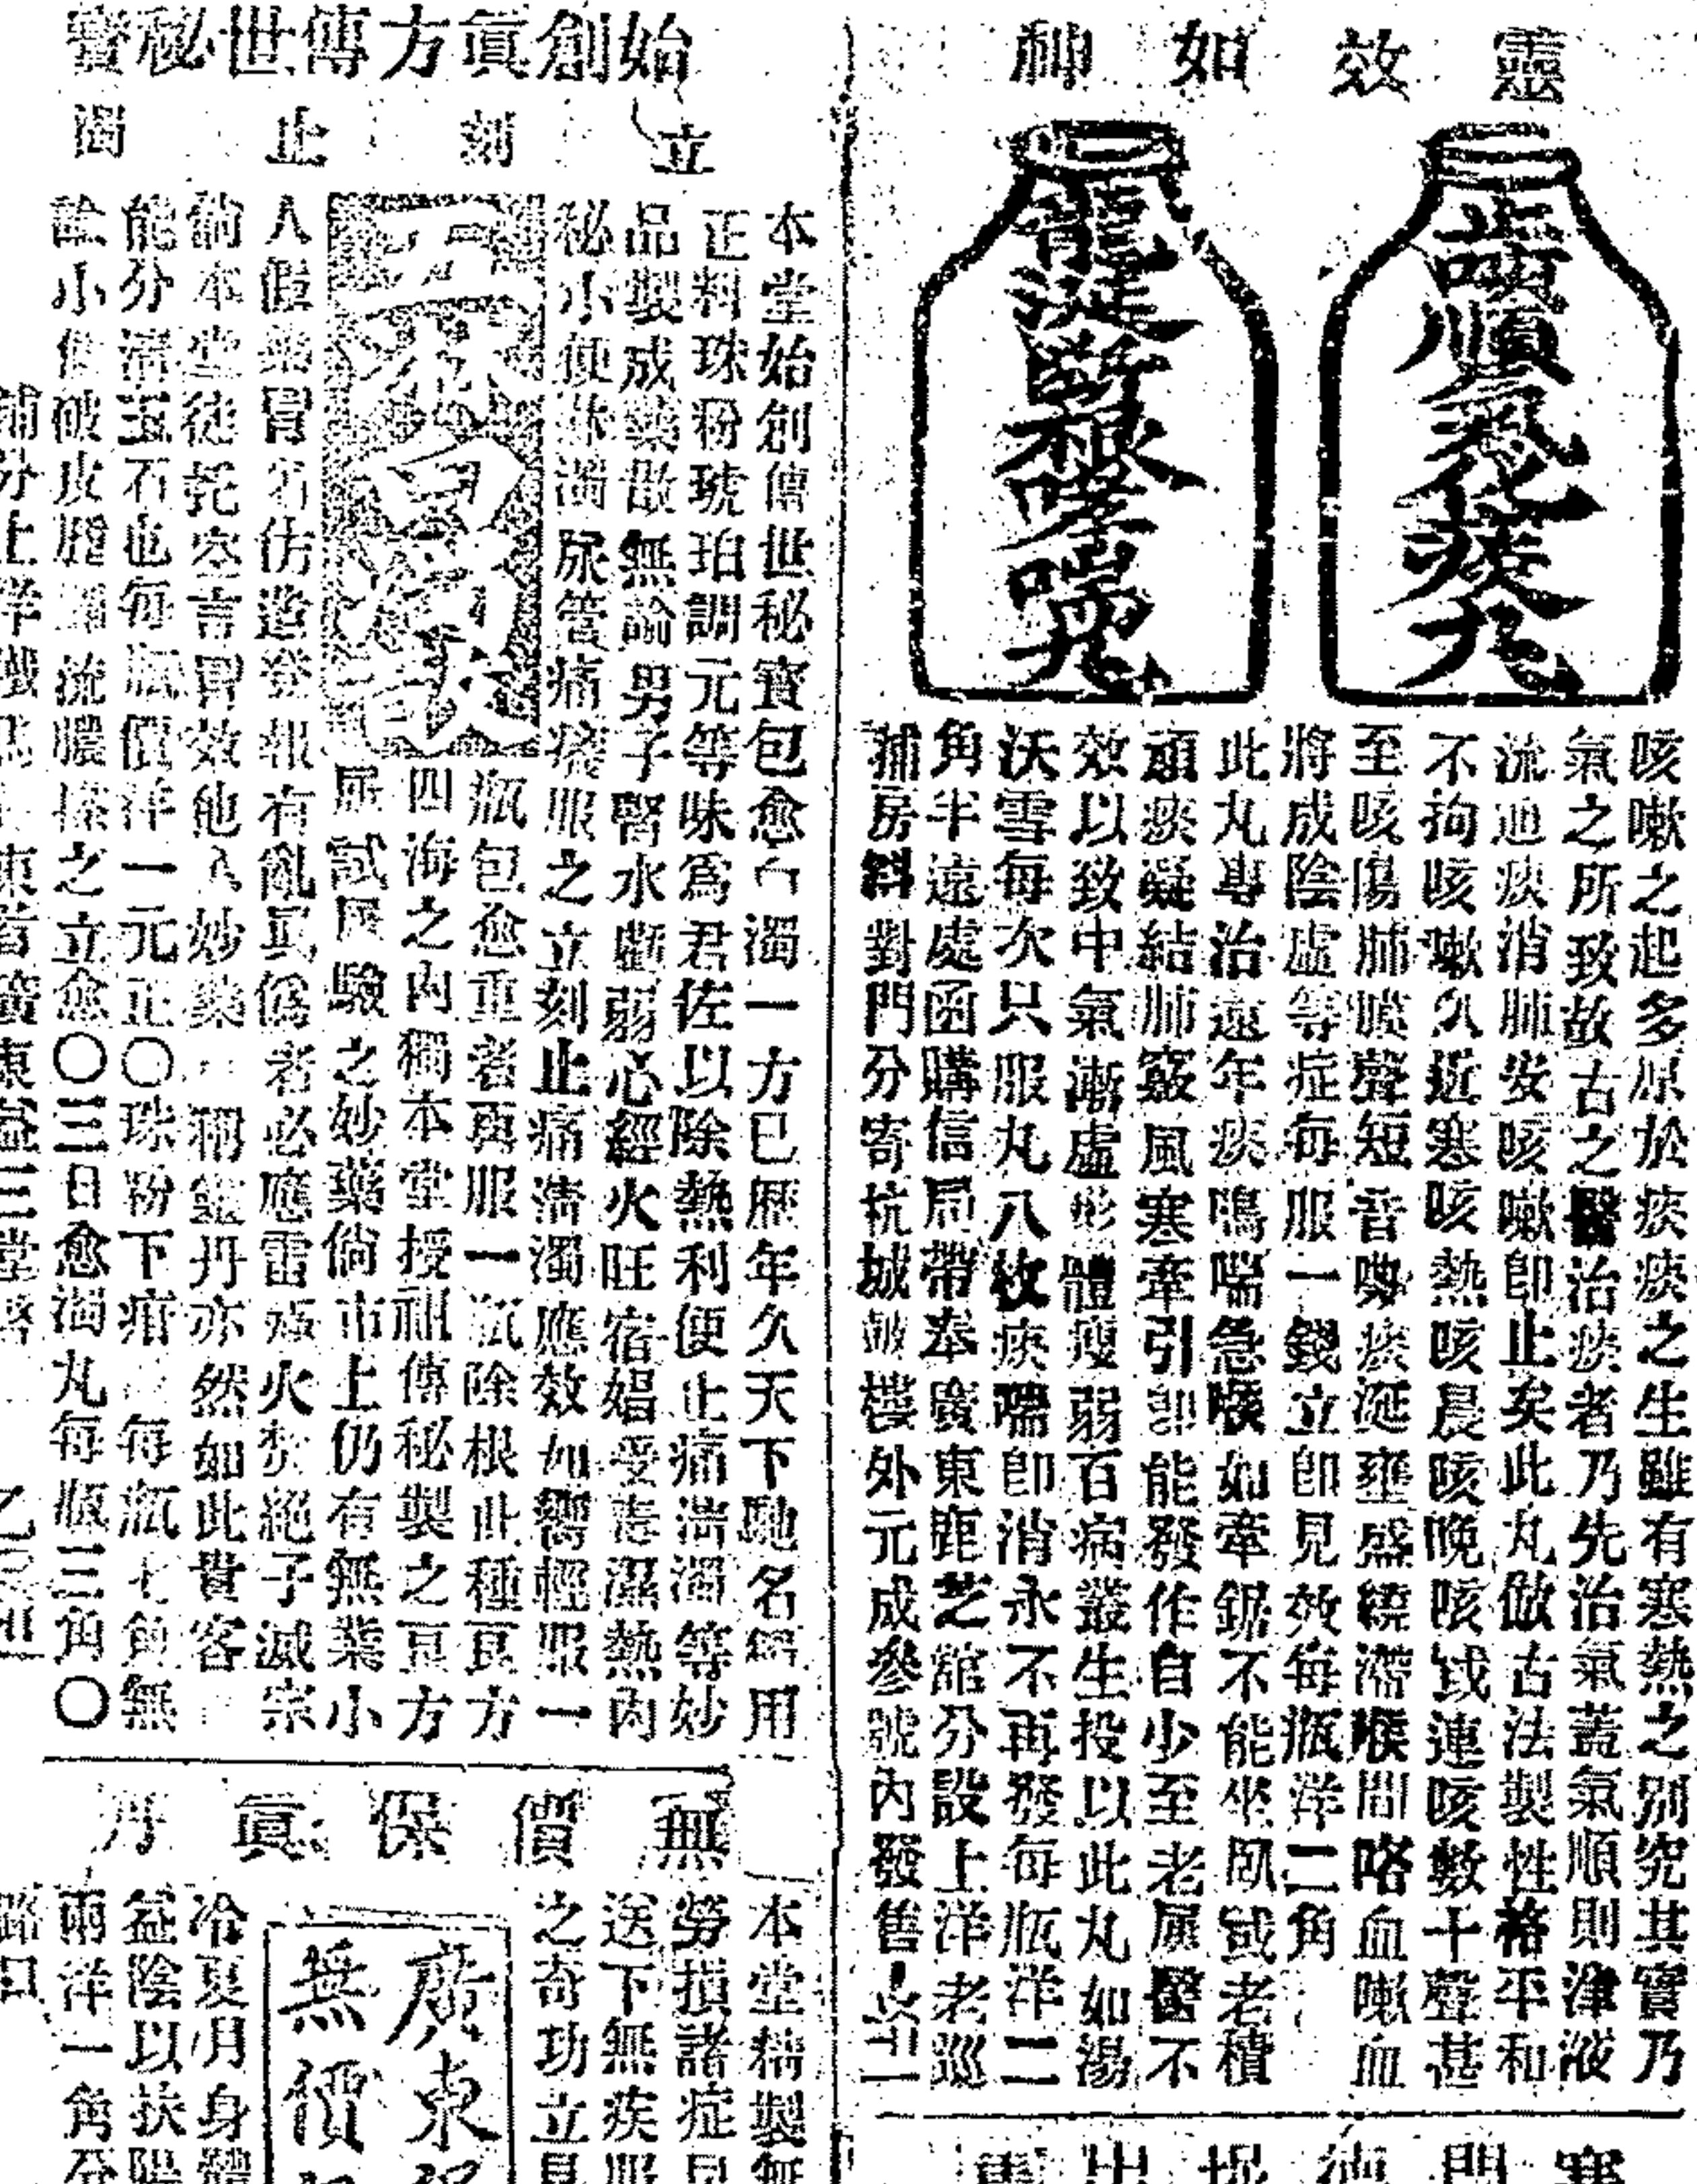 靈效如神
止嗽順氣化痰丸
龍涎斷根哮喘丸
咳嗽之起多原於痰痰之生雖有寒熱之別究其實乃
氣之所致故古之醫治痰者乃先治氣蓋氣順則津液
流通痰消肺安咳嗽卽止矣此丸倣古法製性格平和
不拘咳嗽久近寒咳熱咳晨咳晚咳或連咳數十聲甚
至咳傷肺膜聲短音嘶痰涎壅盛繞滯喉間咯血嗽血
將成陰虛等症每服一錢立卽見效每瓶洋二角
此丸專治遠年痰鳴喘急喉如牽鋸不能坐臥或老積
頑痰凝結肺竅風寒牽引卽能發作自少至老屢醫不
效以致中氣漸虛形體瘦弱百病叢生投以此丸如湯
沃雪每次只服丸八枚痰喘卽消永不再發每瓶洋二
角半遠處函購信局帶奉廣東距芝舘分設上洋老巡
捕房斜對門分寄杭城鼓樓外元成參號內發售
始創眞方傳世秘寶
立刻止濁
本堂始創傳世秘寶包愈白濁一方已歷年久天下馳名 用
正料珠粉琥珀調元等味爲君佐以除熱利便止痛淸濁等妙
品製成藥散無論男子腎水虧弱心經火旺宿娼受毒濕熱內
秘小便淋濁尿管痛癢服之立刻止痛淸濁應效如響輕服一
瓶包愈重者再服一瓶除根此種良方
四海之內獨本堂授祖傳秘製之良方
屢試屢驗之妙藥倘市上仍有無業小
人假藥冒名仿造登報有亂眞僞者必應雷 火焚絕子滅宗
倘本堂徒托空言冒效他人妙藥 稱靈丹亦然如此貴客
能分淸玉石也每瓶價洋一元正〇珠粉下疳 每瓶七角無
論小便破皮 流膿搽之立愈〇三日愈濁丸每瓶三角〇
無價保眞丹
本堂精製無
勞損諸症
送下無疾服
之奇功立見
廣東
無價
冷夏月身體
益陰以扶陽
兩洋一角